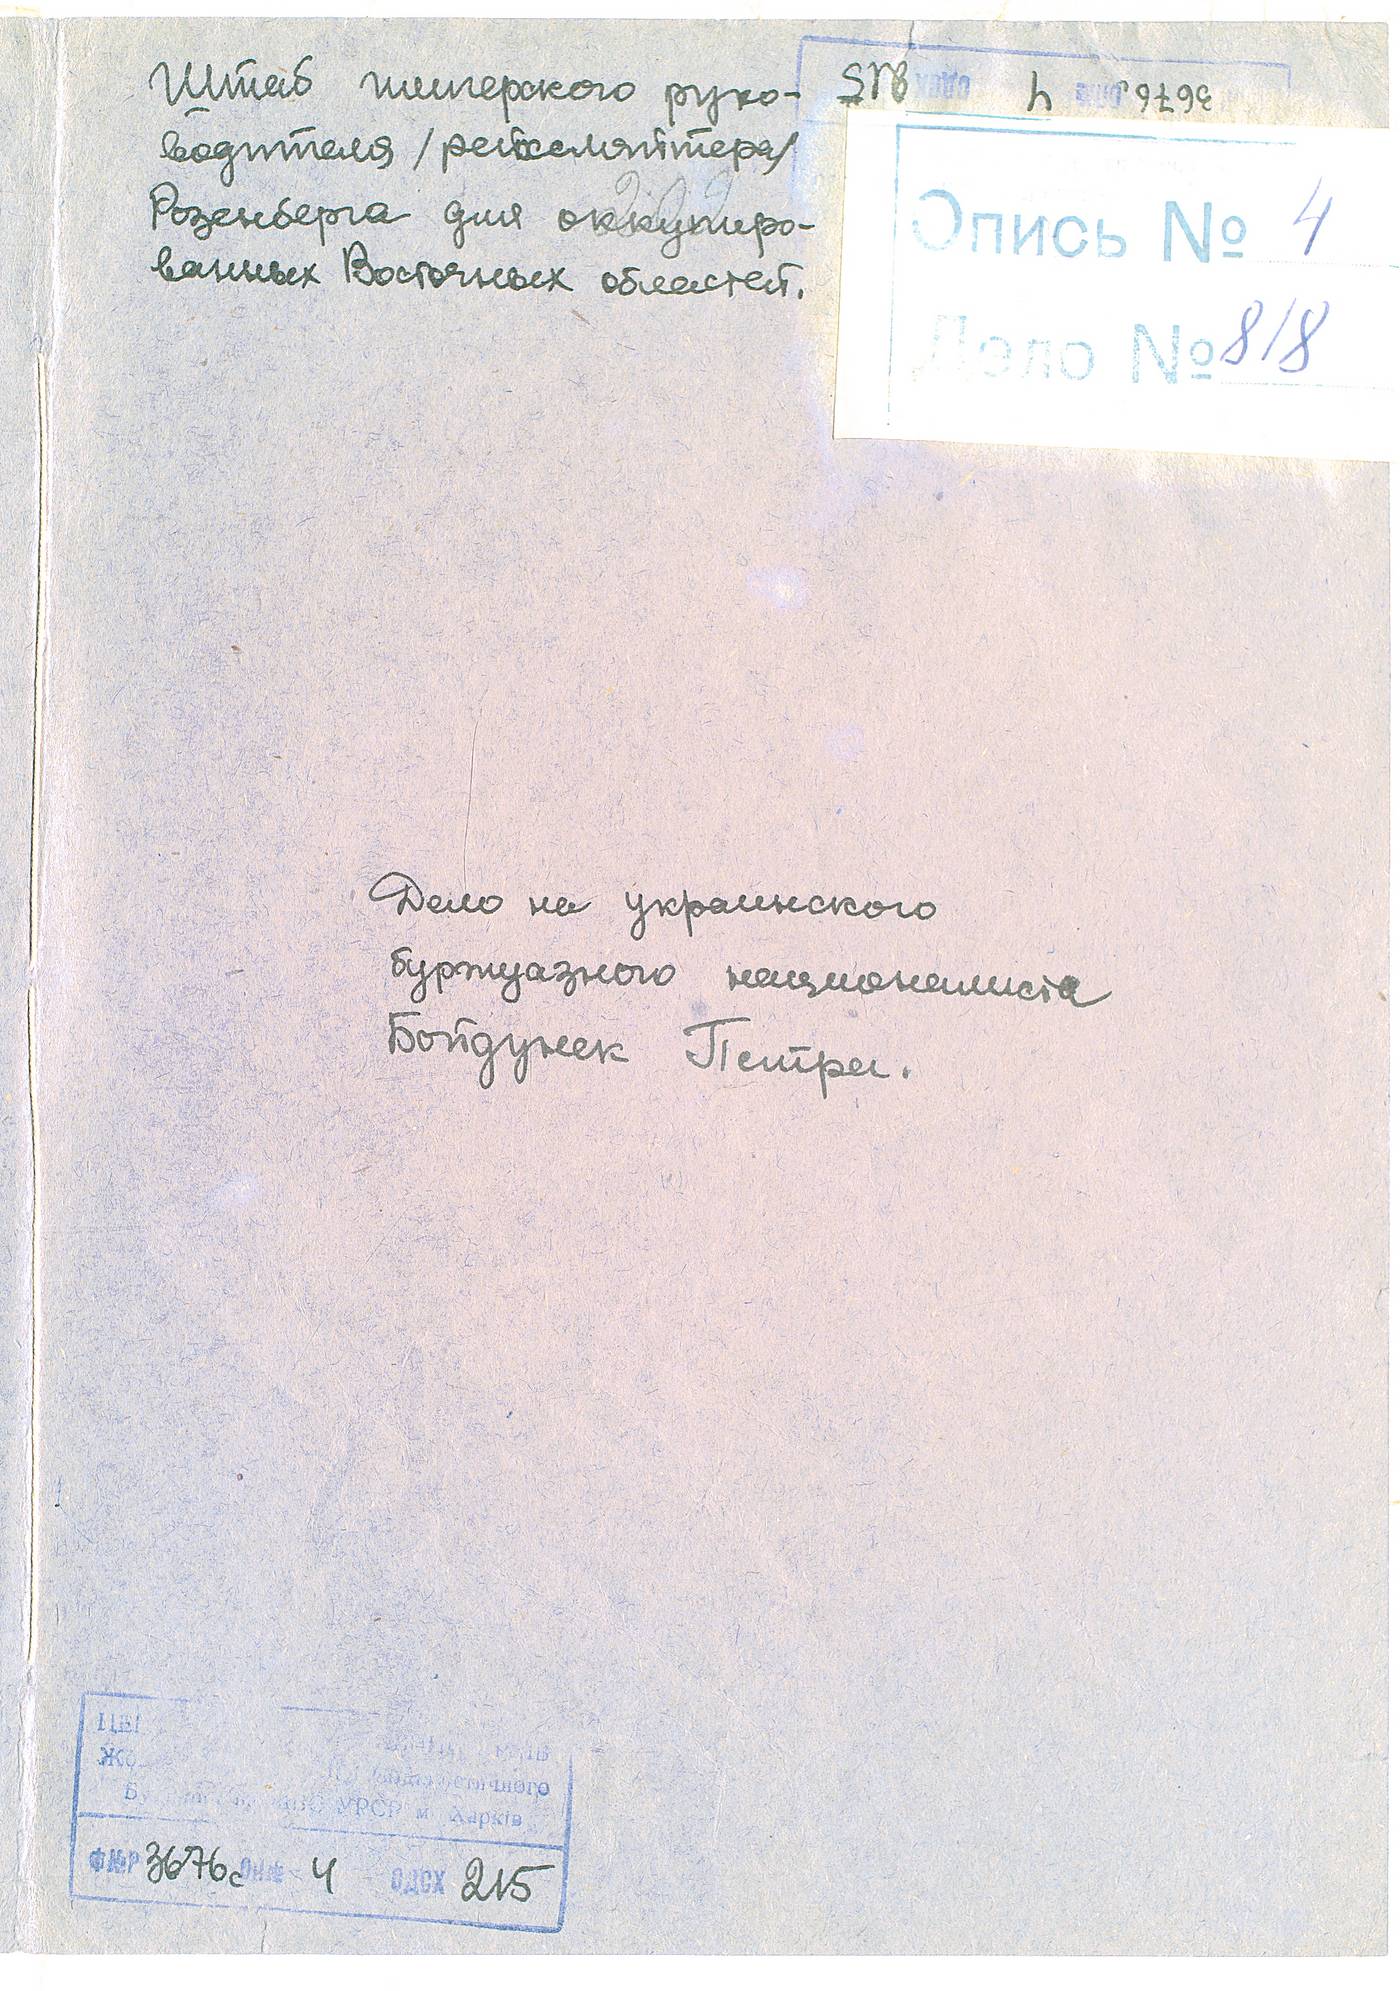 Штаб имперского руко-
водителя /рейхсляйтера/
Розенберга для оккупиро-
ванных Восточных областей.
3676с 4 одсх 215
Опись № 4
Дело № 818
Дело на украинского
буржуазного националиста
Бойдуник Петра.
УРСР м. Харків
Ф№Р 3676с оп№ 4 одсх 215